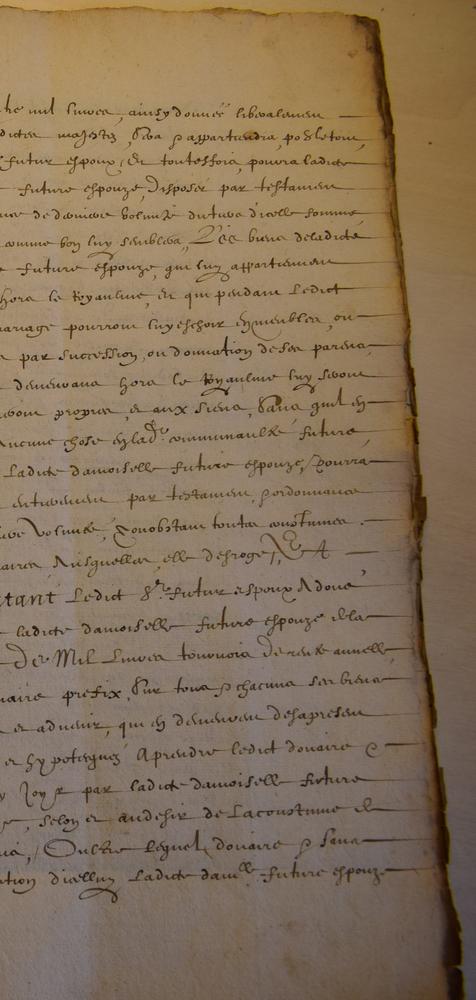 mil livres ainsy donnée liberalement
dictes majestez, sera & appartiendra, po.r le tout,
futur espoux, Et toutesfois, pourra ladicte
future espouze, disposer par testament
de derniere volunté dicelle somme
comme bon luy semblera, Les biens de ladicte
future espouze, qui luy appartiennent
hors le Royaulme, et qui pendant ledict
mariage pourront luy eschoir en meubles, ou
par succession, ou donnation de ses parens,
demeurans hors le Royaulme luy seront
propres, et aux siens, sans quil en
Aucune chose en lad.te communaulté future,
Ladicte damoiselle future espouze, Pourra
entierement par testament, & ordonnance
volunté, Nonobstant toutes coustumes
Ausquelles, elle desroge,
Ledict S.r futur espoux A doué
ladicte damoiselle future espouze de la
De Mil Livres tournois de rente annuelle,
prefix, Sur tous & chacuns ses biens
et advenir, qui en demeurent des apresent
et hypotequez A prendre ledict douaire &
Joyr par ladicte damoiselle future
selon et au desir de La coustume de
Oultre lequel douaire & sans
dicelluy Ladicte dam.lle future espouze